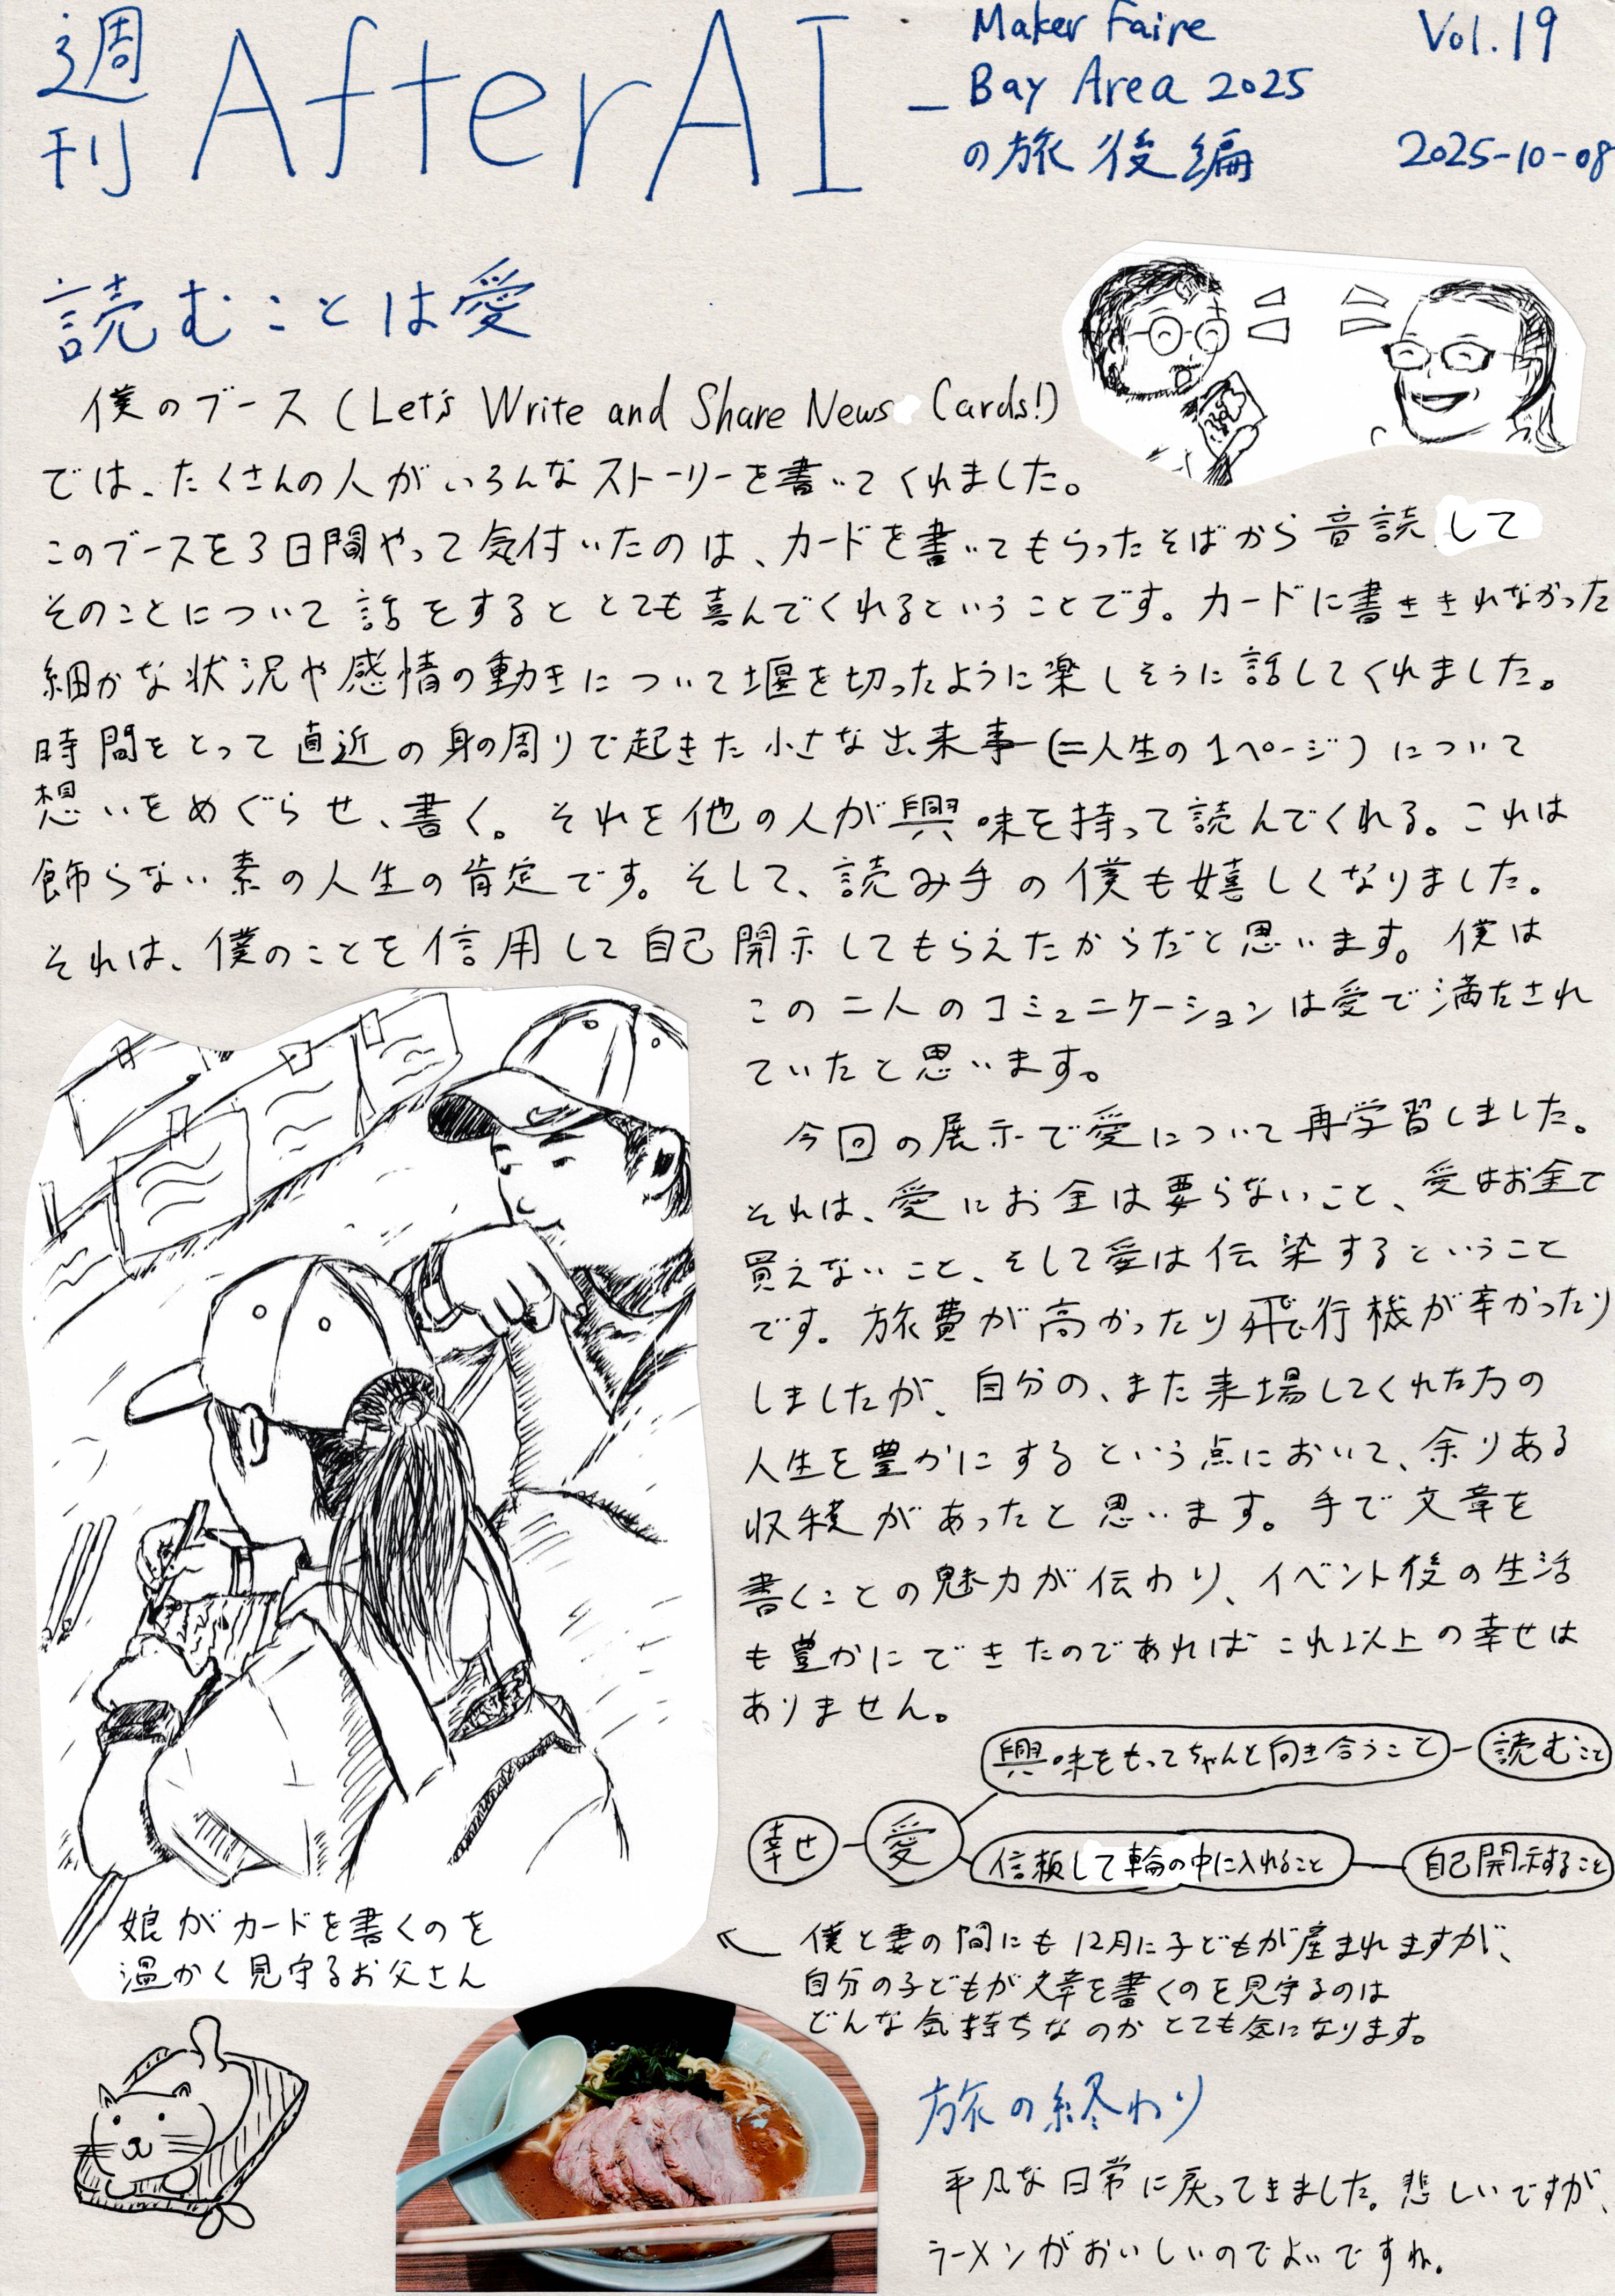 週刊 AfterAI
― Maker Faire
Bay Area 2025
の旅 後編
Vol.19
2025-10-08
読むことは愛
僕のブース (Let's Write and Share News Cards!)
では、たくさんの人がいろんなストーリーを書いてくれました。
このブースを3日間やって気付いたのは、カードを書いてもらったそばから音読して
そのことについて話をするととても喜んでくれるということです。カードに書ききれなかった
細かな状況や感情の動きについて堰を切ったように楽しそうに話してくれました。
時間をとって直近の身の周りで起きた小さな出来事(=人生の1ページ)について
想いをめぐらせ、書く。それを他の人が興味を持って読んでくれる。これは
飾らない素の人生の肯定です。そして、読み手の僕も嬉しくなりました。
それは、僕のことを信用して自己開示してもらえたからだと思います。僕は
この二人のコミュニケーションは愛で満たされ
ていたと思います。
今回の展示で愛について再学習しました。
それは、愛にお金は要らないこと、愛はお金で
買えないこと、そして愛は伝染するということ
です。旅費が高かったり飛行機が辛かったり
しましたが、自分の、また来場してくれた方の
人生を豊かにするという点において、余りある
収穫があったと思います。手で文章を
書くことの魅力が伝わり、イベント後の生活
も豊かにできたのであればこれ以上の幸せは
ありません。
興味をもってちゃんと向き合うこと
読むこと
幸せ
愛
信頼して輪の中に入れること
自己開示すること
娘がカードを書くのを
温かく見守るお父さん
僕と妻の間にも12月に子どもが産まれますが、
自分の子どもが文章を書くのを見守るのは
どんな気持ちなのかとても気になります。
旅の終わり
平凡な日常に戻ってきました。悲しいですが、
ラーメンがおいしいのでよいですね。